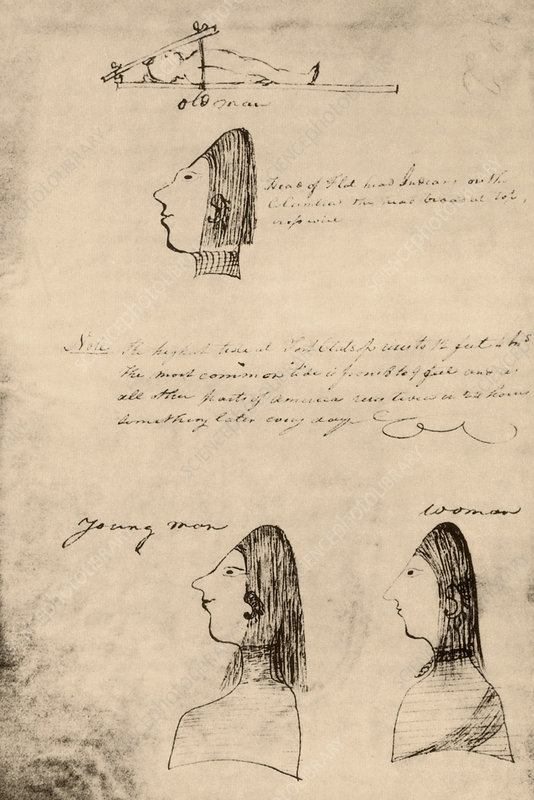 old man
Head of Flat head Indians on the
Columbia the head broad at top,
cross wise
Note the highest tide at Fort Clatsop
the most common tide is from 8 to 9 feet and
all other parts of America runs twice in 24 hours
something later every day
Young man
Woman
SCIENCEPHOTOLIBRARY